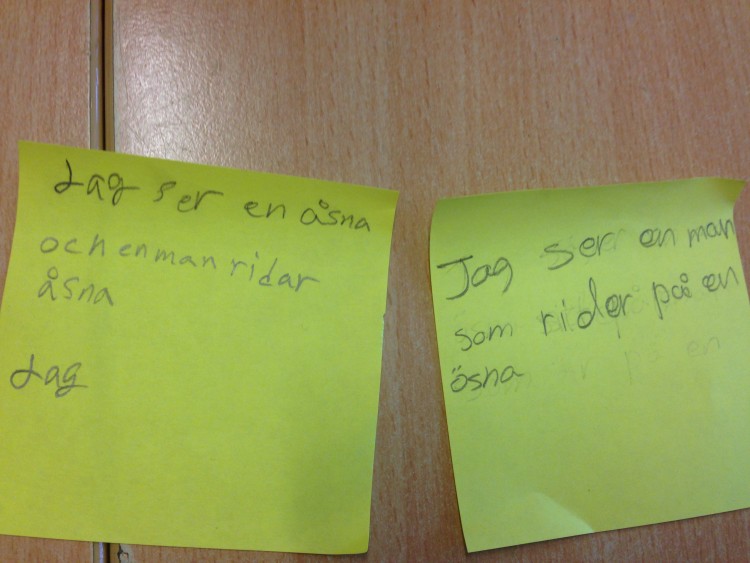 Jag ser en åsna
och en man ridar
åsna
Jag
Jag ser en man
som rider på en
ösna